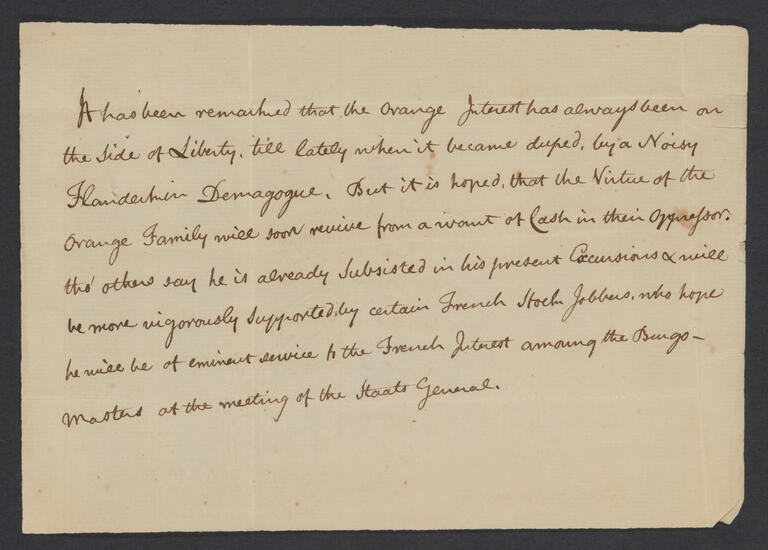 It has been remarked that the Orange Interest has always been on
the side of Liberty, till lately when it became duped, by a Noisy
Flanderkin Demagogue. But it is hoped, that the Virtue of the
Orange Family will soon revive from a want of Cash in their Oppressor.
tho' others say he is already Subsisted in his present Excursions & will
be more vigorously Supported, by certain French Stock Jobbers, who hope
he will be of eminent service to the French Interest among the Burgo-
Masters at the meeting of the Staats General.